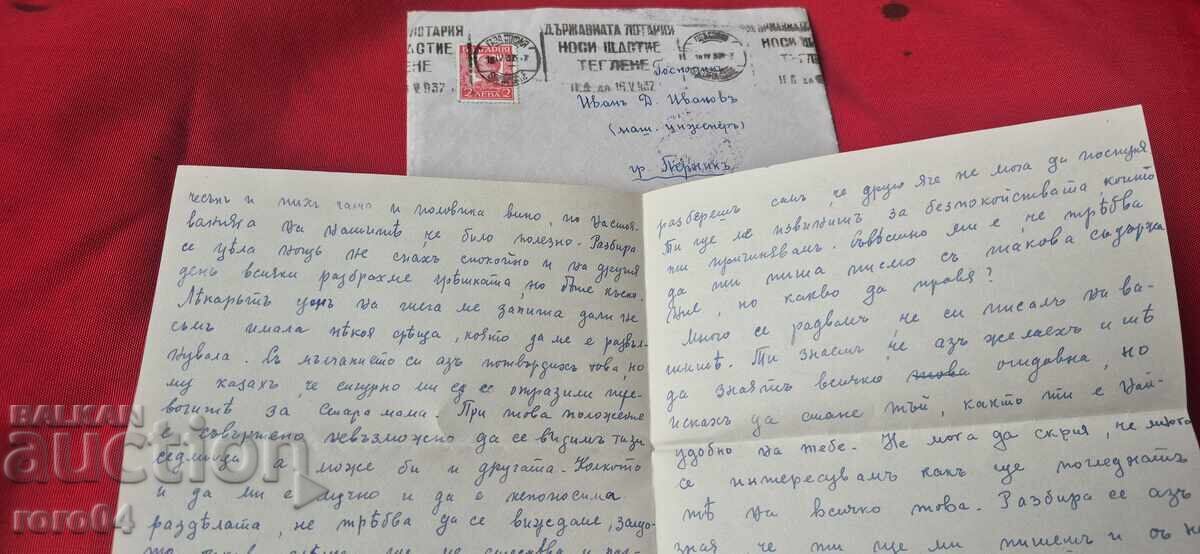 ЛОТАРИЯ
ДЪРЖАВНАТА ЛОТАРИЯ
НОСИ ЩАСТИЕ
ТЕГЛЕНЕ
ДО 16.V.937
БЪЛГАРИЯ
2 ЛЕВА 2
Господинъ
Иванъ Д. Ивановъ
(маш. инженеръ)
гр. Перникъ
и половинка вино, по настоя-
ванията на нашитѣ, че било полезно. Разбира
се цѣла нощь не спахъ спокойно и на другия
день всички разбрахме грѣшката, но бѣше късно.
Лѣкарьтъ ме запита дали не
съмъ имала нѣкоя срѣща, която да ме е развъл-
нувала. Съ мълчанието си азъ потвърдихъ това, но
му казахъ, че сигурно ми сѫ се отразили тре-
вогитѣ за Стара мама. При това положение
е съвършено невъзможно да се видимъ тази
седмица а може би и другата. Колкото
и да ми е мѫчно и да е непоносима
раздѣлата, не трѣбва да се виждаме, защо-
разберешъ самъ, че друго яче не мога да постѫпя
Ти ще ме извинишъ за безпокойствата които
ти причинявамъ. Съвѣстно ми е, че трѣбва
да ти пиша писмо съ такова съдържа
ние, но какво да правя?
Много се радвамъ, че си писалъ на ва-
шитѣ. Ти знаешъ, че азъ желаехъ и тѣ
да знаятъ всичко това отдавна, но
исkахъ да стане тъй, както ти е най-
удобно на тебе. Не мога да скрия, че много
се интересувамъ какъ ще погледнатъ
тѣ на всичко това. Разбира се азъ
зная, че ти ще ми пишешъ и
BALKAN
auction
roro04